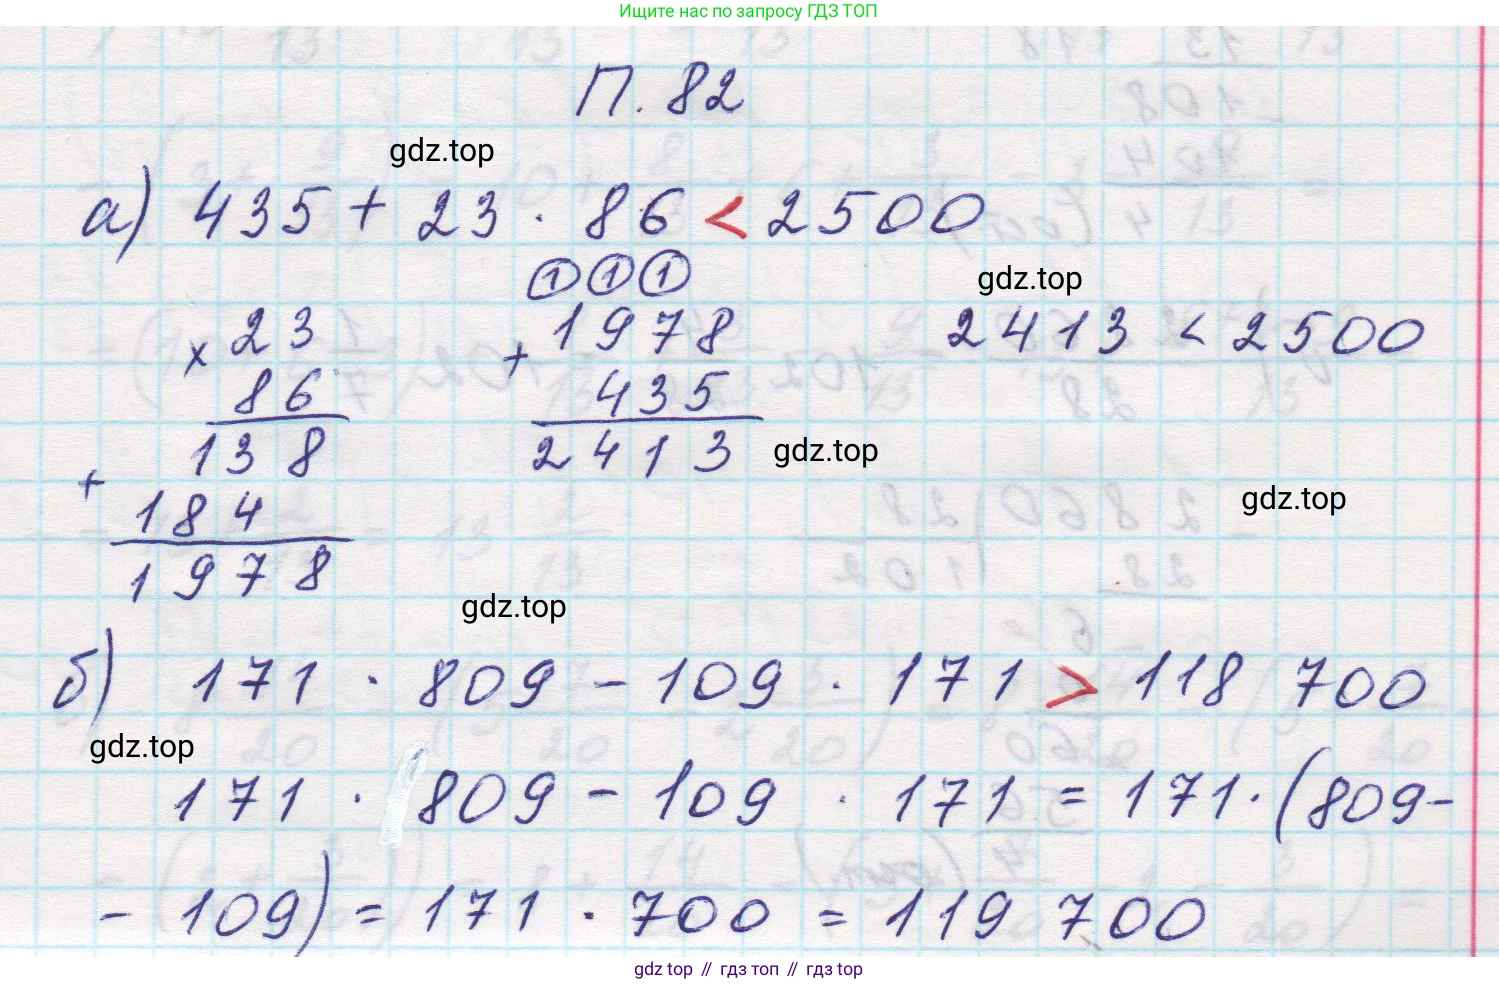 Ищите нас по запросу ГДЗ ТОП
П. 82
gdz.top
а) 435 + 23 · 86 < 2500
1 1 1
gdz.top
× 23
86
138
+ 184
1978
+ 1978
435
2413
2413 < 2500
gdz.top
gdz.top
gdz.top
б) 171 · 809 - 109 · 171 > 118 700
gdz.top
171 · 809 - 109 · 171 = 171 · (809 -
- 109) = 171 · 700 = 119 700
gdz top // гдз топ // гдз top